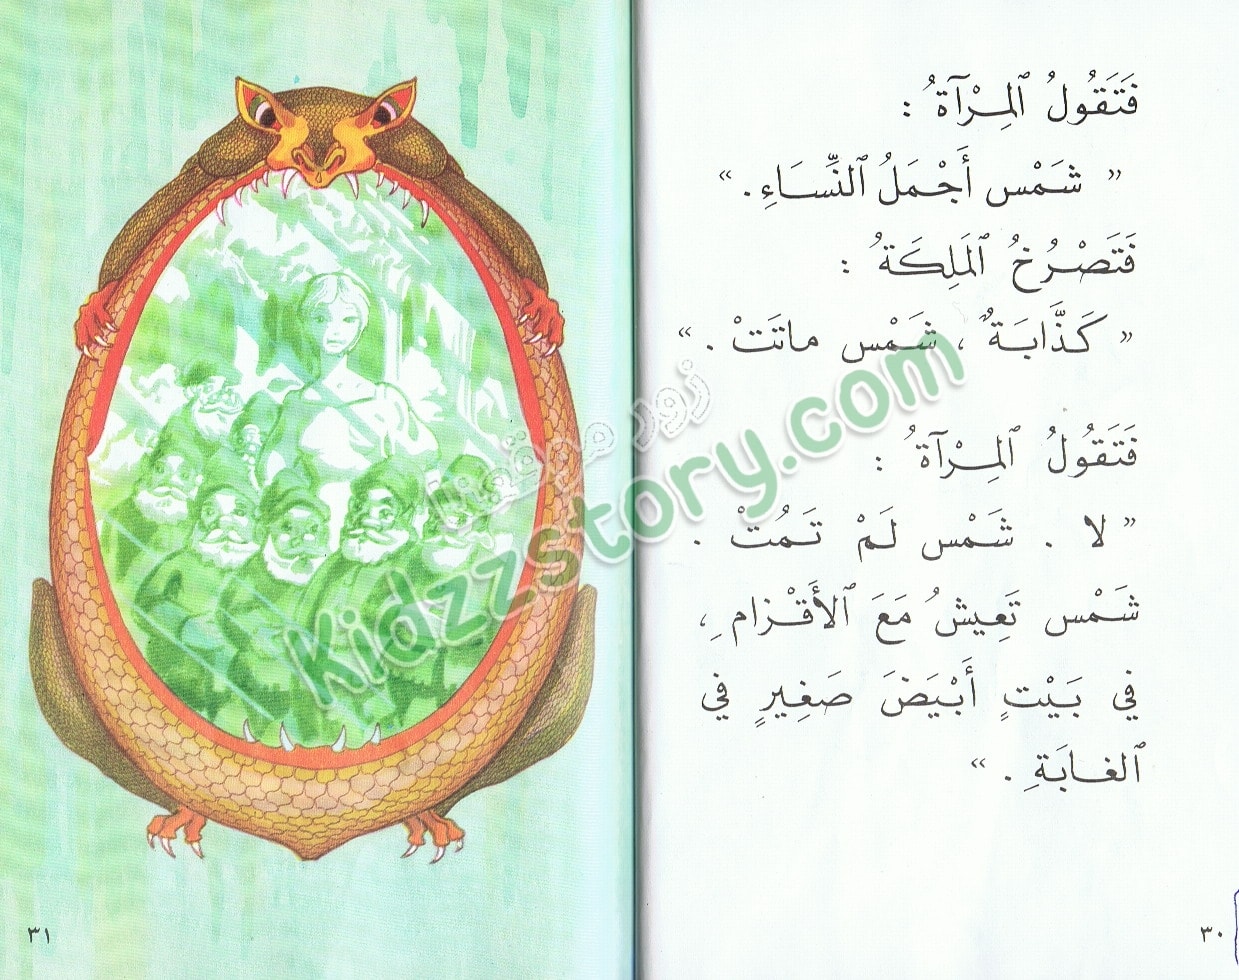 فَتَقُولُ ٱلمِرْآةُ :
” شَمْس أَجْمَلُ ٱلنِّسَاءِ . “
فَتَصْرُخُ ٱلمَلِكَةُ :
” كَذَّابَةٌ ، شَمْس ماتَتْ . “
فَتَقُولُ ٱلمِرْآةُ :
” لا . شَمْس لَمْ تَمُتْ .
شَمْس تَعِيشُ مَعَ ٱلأَقْزامِ ،
في بَيْتٍ أَبْيَضَ صَغِيرٍ في
ٱلغابَةِ . “
٣٠
٣١
زوروا موقعنا
Kidzzstory.com